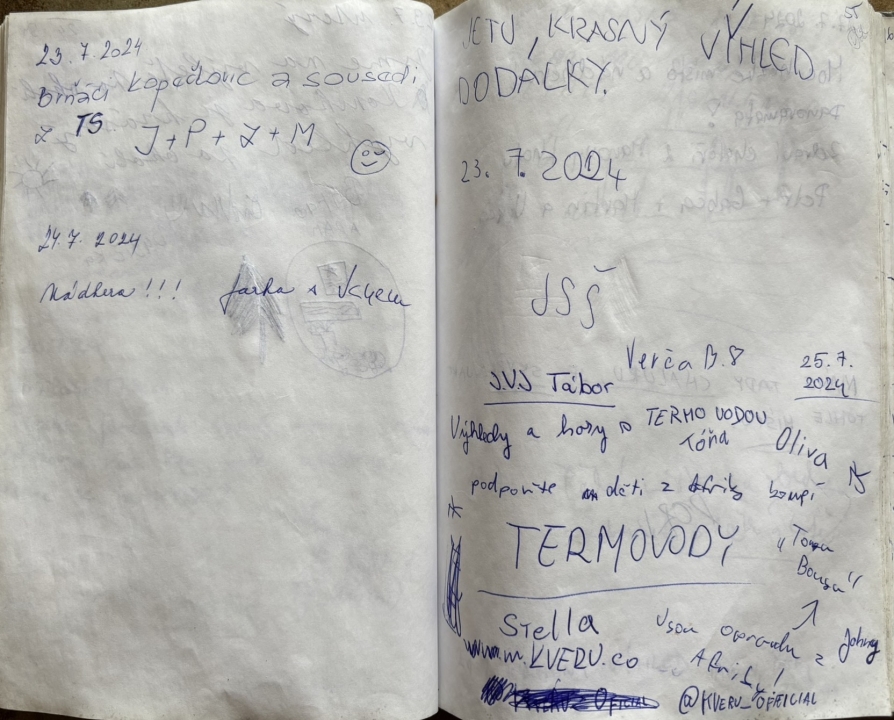 23.7.2024
Brňáci Kopečkovic a sousedi
z TS J+P+Z+M
24.7.2024
Nádhera!!! Jarka s
55
JETU, KRASNÝ VÝHLED
DODÁLKY.
23. 7. 2024
JSŠ
Verča B. 8 25.7.
2024
J.V.J Tábor
Výhledy a hory s TERMO VODOU
Tóňa Oliva
podpořte děti z Afriky koupí
TERMOVODY
"Tomu
Stella Jsou opravdu z Johny
Afriky!
www.m.KVERU.co
@KVERU_OFFICIAL